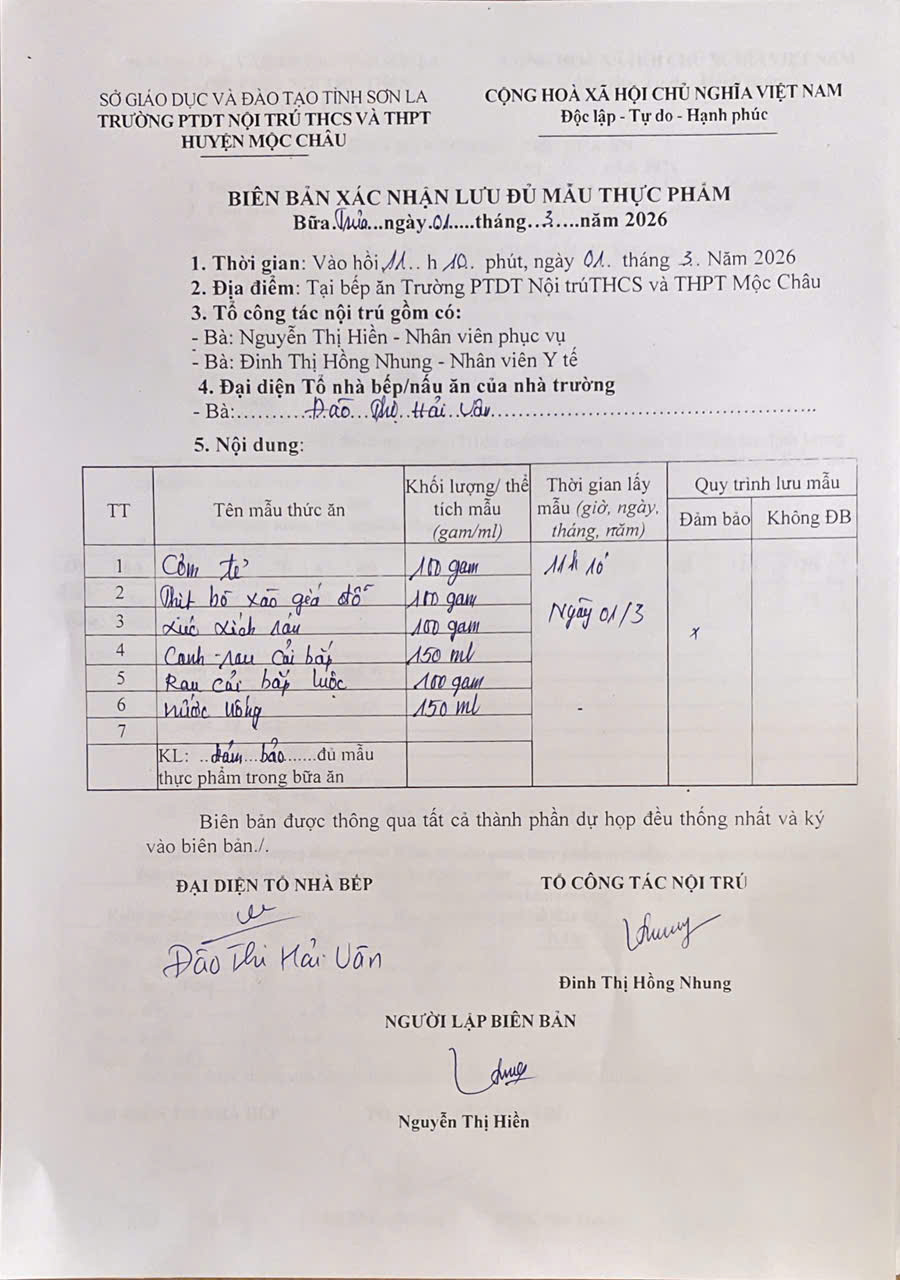 SỞ GIÁO DỤC VÀ ĐÀO TẠO TỈNH SƠN LA
TRƯỜNG PTDT NỘI TRÚ THCS VÀ THPT
HUYỆN MỘC CHÂU
CỘNG HOÀ XÃ HỘI CHỦ NGHĨA VIỆT NAM
Độc lập - Tự do - Hạnh phúc
BIÊN BẢN XÁC NHẬN LƯU ĐỦ MẪU THỰC PHẨM
Bữa.Trưa...ngày.01.....tháng..3....năm 2026
1. Thời gian: Vào hồi 11.. h 10.. phút, ngày 01.. tháng 3.. Năm 2026
2. Địa điểm: Tại bếp ăn Trường PTDT Nội trúTHCS và THPT Mộc Châu
3. Tổ công tác nội trú gồm có:
- Bà: Nguyễn Thị Hiền - Nhân viên phục vụ
- Bà: Đinh Thị Hồng Nhung - Nhân viên Y tế
4. Đại diện Tổ nhà bếp/nấu ăn của nhà trường
- Bà:..........Đào...Thị..Hải..Vân..................................................
5. Nội dung:
TT Tên mẫu thức ăn Khối lượng/ thể tích mẫu (gam/ml) Thời gian lấy mẫu (giờ, ngày, tháng, năm) Quy trình lưu mẫu
Đảm bảo Không ĐB
1 Cơm tẻ 100 gam 11h 10'
2 Thịt bò xào giá đỗ 100 gam Ngày 01/3
3 xúc xích rán 100 gam x
4 Canh rau cải bắp 150 ml
5 Rau cải bắp luộc 100 gam
6 nước uống 150 ml -
7
KL: ..đảm...bảo.......đủ mẫu
thực phẩm trong bữa ăn
Biên bản được thông qua tất cả thành phần dự họp đều thống nhất và ký
vào biên bản./.
ĐẠI DIỆN TỔ NHÀ BẾP
TỔ CÔNG TÁC NỘI TRÚ
Đào Thi Hải Vân
Nhung
Đinh Thị Hồng Nhung
NGƯỜI LẬP BIÊN BẢN
Nguyễn Thị Hiền